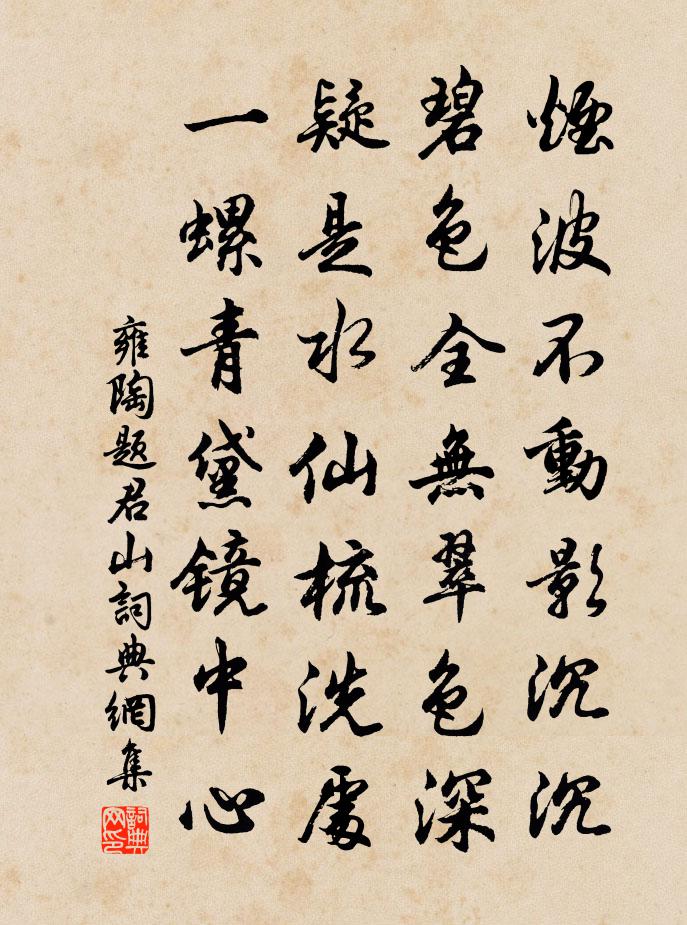 煙波不動影沉沉
碧色全無翠色深
疑是水仙梳洗處
一螺青黛鏡中心
雍陶題君山詞典網集
詞典网印